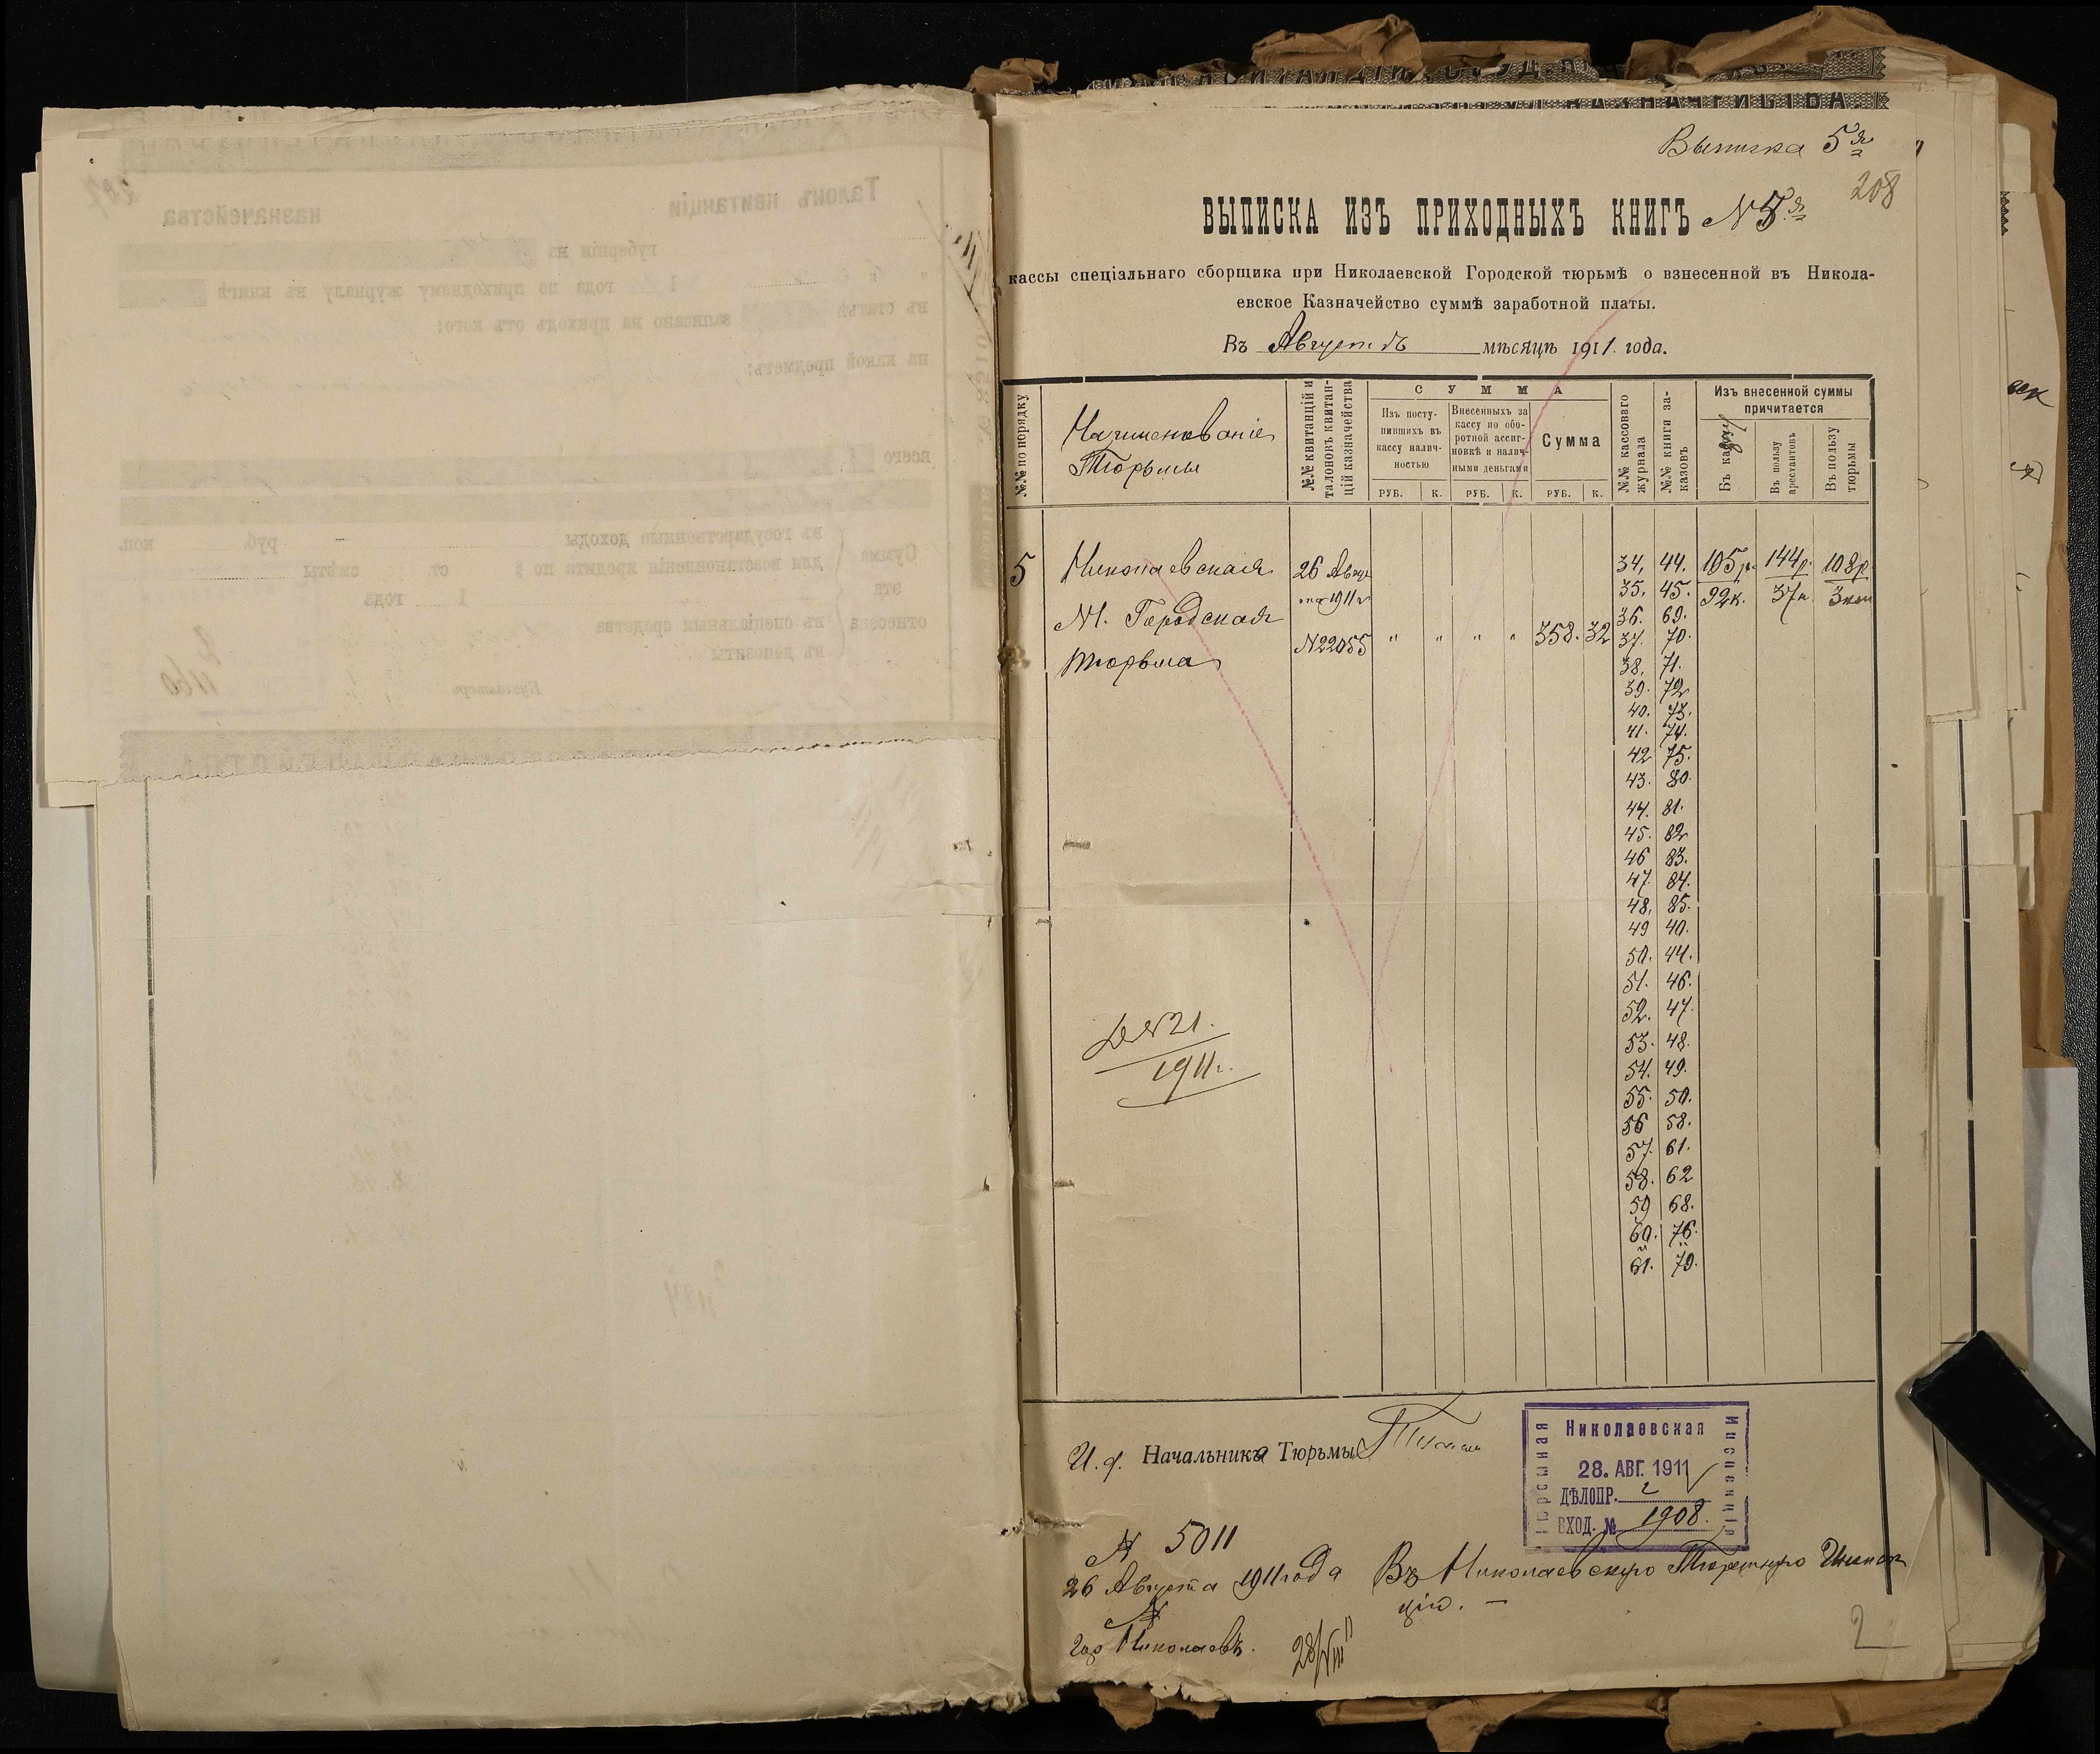 Выписка 5я
208
ВЫПИСКА ИЗЪ ПРИХОДНЫХЪ КНИГЪ № 5я
кассы спеціальнаго сборщика при Николаевской Городской тюрьмѣ о взнесенной въ Никола-
евское Казначейство суммѣ заработной платы.
Въ Августѣ мѣсяцѣ 1911 года.
№№ по порядку
Наименованіе
Тюрьмы
№№ квитанцій и
талоновъ квитан-
цій казначейства
СУММА
Изъ посту-
пившихъ въ
кассу налич-
ностью
Внесенныхъ за
кассу по обо-
ротной ассиг-
новкѣ и налич-
ными деньгами
Сумма
РУБ. К. РУБ. К. РУБ. К.
№№ кассоваго
журнала
№№ книги за-
казовъ
Изъ внесенной суммы
причитается
Въ казну
Въ пользу
арестантовъ
Въ пользу
тюрьмы
5 Николаевская 26 Авгу- 34. 44. 105р. 144р. 108р
ста 1911 г 35. 45. 92к. 37к 3коп
№1. Городская 36. 69.
№22055 " " " " 358. 32 37. 70.
тюрьма 38. 71.
39. 72
40. 73.
41. 74.
42 75.
43. 80.
44. 81.
45. 82
46 83.
47. 84.
48. 85.
49 40.
50. 44.
51. 46.
52. 47.
53. 48.
54. 49.
55. 50.
56 58.
57. 61.
58. 62
59 68.
60. 76.
и и
61. 79.
Д №21.
1911г.
И. д. Начальника Тюрьмы
Николаевская
Тюремная
Инспекція
28. АВГ. 1911
ДѢЛОПР. 2
ВХОД. № 1908.
№ 5011
26 Августа 1911 года
Въ Николаевскую Тюремную Инспек
цію. —
гор Николаевъ.
28/VIII 11
2
Талонъ квитанціи
казначейства
губерніи на
1 года по приходному журналу въ книгѣ
въ статьѣ записано на приходъ отъ кого:
на какой предметъ:
всего
Сумма
эта
отнесена
въ государственные доходы руб. коп.
для возстановленія кредита по § ст. смѣты
1 года
въ спеціальныя средства
въ депозиты
Бухгалтеръ